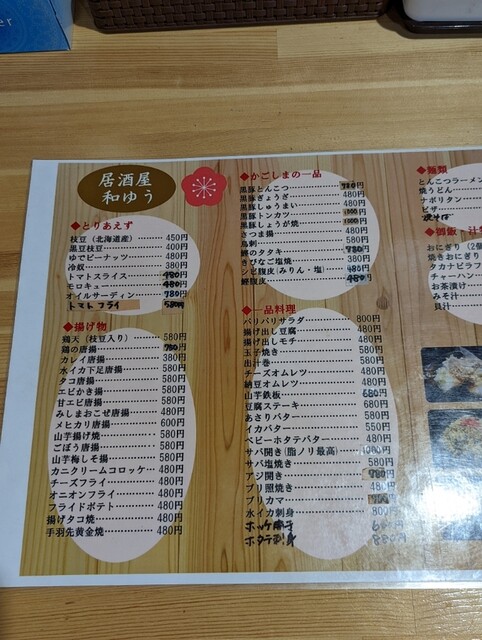 居酒屋
和ゆう
◆とりあえず
枝豆（北海道産）………450円
黒豆枝豆………400円
ゆでピーナッツ………480円
冷奴………380円
トマトスライス………
モロキュー………480円
オイルサーディン………780円
トマトフライ
◆揚げ物
鶏天（枝豆入り）………580円
鶏の唐揚………
カレイ唐揚………380円
水イカ下足唐揚………580円
タコ唐揚………580円
エビかき揚………580円
甘エビ唐揚………580円
みしまおこぜ唐揚………480円
メヒカリ唐揚………600円
山芋揚げ焼………580円
ごぼう唐揚………580円
山芋梅しそ揚………580円
カニクリームコロッケ…480円
チーズフライ………480円
オニオンフライ………480円
フライドポテト………480円
揚げタコ焼………480円
手羽先黄金焼………480円
◆かごしまの一品
黒豚とんこつ………
黒豚ぎょうざ………480円
黒豚しゅうまい………480円
黒豚トンカツ
黒豚しょうが焼
さつま揚………480円
鳥刺………580円
鰹のタタキ………
きびなご塩焼………380円
シビ腹皮(みりん・塩)…480円
鰹腹皮………
◆一品料理
バリバリサラダ………800円
揚げ出し豆腐………480円
揚げ出しモチ………480円
玉子焼き………580円
出汁巻………580円
チーズオムレツ………480円
納豆オムレツ………480円
山芋鉄板………680円
豆腐ステーキ………680円
あさりバター………580円
イカバター………550円
ベビーホタテバター………480円
サバ開き(脂ノリ最高)…1000円
サバ塩焼き………580円
アジ開き………
ブリ照焼き………480円
ブリカマ
水イカ刺身………800円
ホタテ刺身
◆麺類
とんこつラーメン
焼うどん
ナポリタン
ピザ
焼そば
◆御飯・汁
おにぎり（2個
焼きおにぎり
タカナピラフ
チャーハン
お茶漬け
みそ汁
貝汁